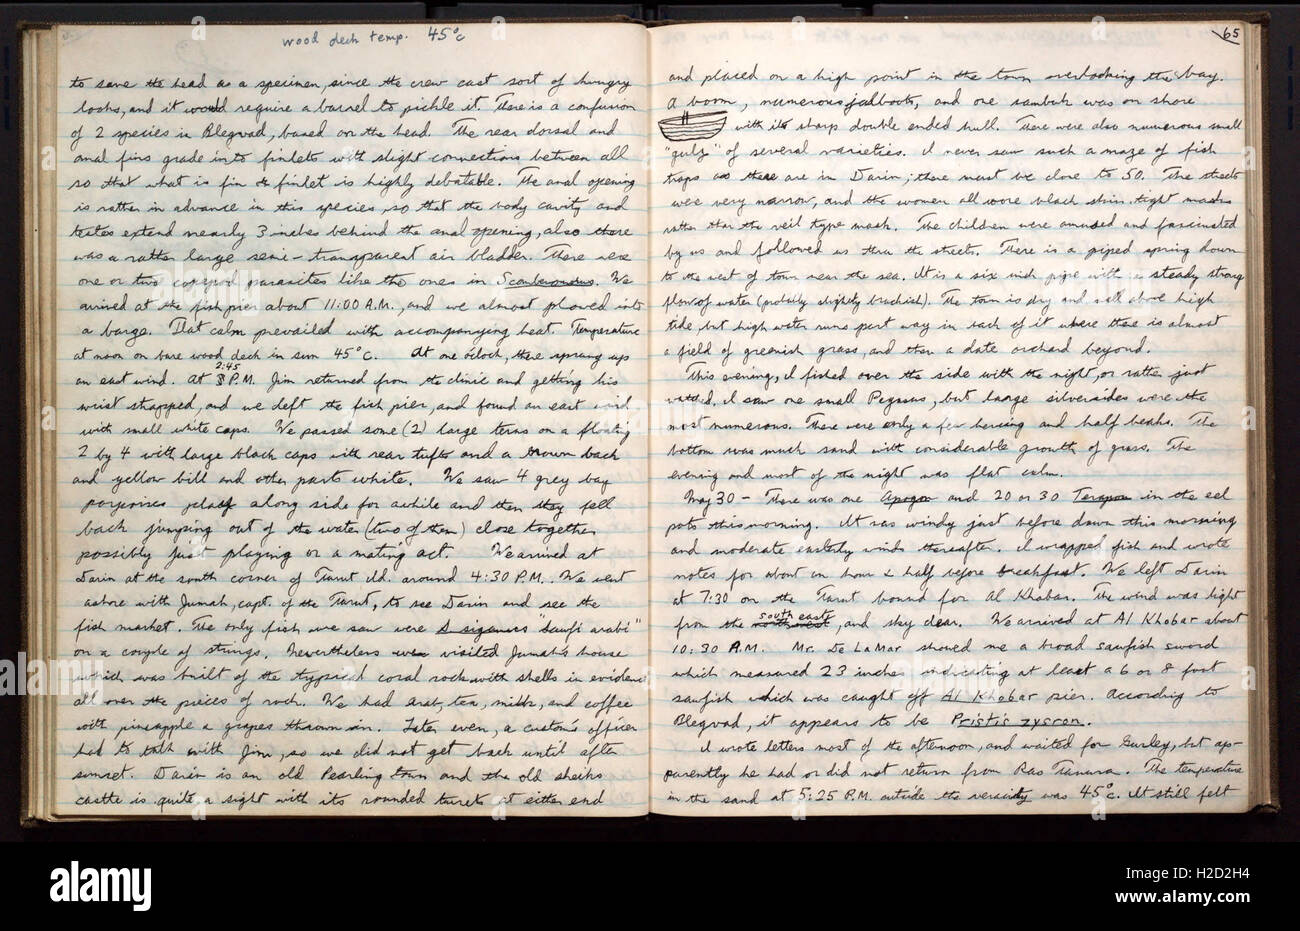 wood deck temp. 45°C
to save the head as a specimen, since the crew cast sort of hungry
looks, and it would require a barrel to pickle it. There is a confusion
of 2 species in Blegvad, based on the head. The rear dorsal and
anal fins grade into finlets with slight connections between all
so that what is fin & finlet is highly debatable. The anal opening
is rather in advance in this species, so that the body cavity and
testes extend nearly 3 inches behind the anal opening, also there
was a rather large semi-transparent air bladder. There were
one or two copepod parasites like the ones in Scomberomorus. We
arrived at the fish pier about 11:00 A.M., and we almost plowed into
a barge. Flat calm prevailed with accompanying heat. Temperature
at noon on bare wood deck in sun 45°C. At one o'clock, there sprang up
an east wind. At 2:45 P.M. Jim returned from the clinic and getting his
wrist strapped, and we left the fish pier, and found an east wind
with small white caps. We passed some (2) large terns on a floating
2 by 4 with large black caps with rear tufts and a brown back
and yellow bill and other parts white. We saw 4 grey bay
porpoises along side for awhile and then they fell
back jumping out of the water (two of them) close together
possibly just playing or a mating act. We arrived at
Darin at the south corner of Tarut Ild. around 4:30 P.M.. We went
ashore with Jumah, capt. of the Tarut, to see Darin and see the
fish market. The only fish we saw were S siganus "saufi arabi"
on a couple of strings. Nevertheless visited Jumah's house
which was built of the typical coral rock with shells in evidence
all over the pieces of rock. We had arab, tea, milk, and coffee
with pineapple & grapes thrown in. Later even, a custom's officer
had to talk with Jim, so we did not get back until after
sunset. Darin is an old Pearling town and the old sheiks
castle is quite a sight with its rounded turrets at either end
65
and placed on a high point in the town overlooking the bay.
A boom, numerous jalboots, and one sambuk was on shore
with its sharp double ended hull. There were also numerous small
"gulz" of several varieties. I never saw such a maze of fish
traps as there are in Darin; there must be close to 50. The streets
were very narrow, and the women all wore black skin-tight masks
rather than the veil type mask. The children were amused and fascinated
by us and followed us thru the streets. There is a piped spring down
to the west of town near the sea. It is a six inch pipe with a steady strong
flow of water (probably slightly brackish). The town is dry and well above high
tide, but high water runs part way in back of it where there is almost
a field of greenish grass, and then a date orchard beyond.
This evening, I fished over the side with the night, or rather just
watched. I saw one small Pegasus, but large silversides were the
most numerous. There were only a few herring and half beaks. The
bottom was much sand with considerable growth of grass. The
evening and most of the night was flat calm.
May 30 - There was one Apogon and 20 or 30 Terapon in the eel
pots this morning. It was windy just before dawn this morning
and moderate easterly winds thereafter. I wrapped fish and wrote
notes for about an hour & half before breakfast. We left Darin
at 7:30 on the Tarut bound for Al Khobar. The wind was light
from the south east, and sky clear. We arrived at Al Khobar about
10:30 A.M. Mr. De La Mar showed me a broad sawfish sword
which measured 23 inches indicating at least a 6 or 8 foot
sawfish which was caught off Al Khobar pier. According to
Blegvad, it appears to be Pristis zysron.
I wrote letters most of the afternoon, and waited for Gurley, but ap-
parently he had or did not return from Ras Tanura. The temperature
in the sand at 5:25 P.M. outside the was 45°C. It still felt
alamy
alamy stock photo
H2D2H4
www.alamy.com